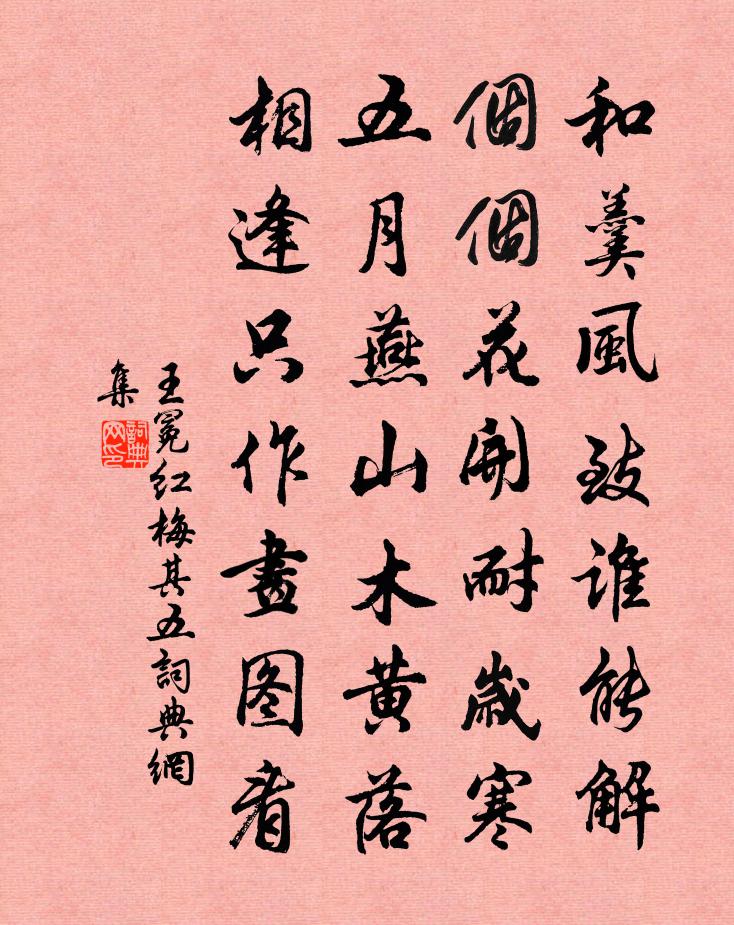 和羹風致谁能解
個個花開耐歲寒
五月燕山木黄落
相逢只作畫图看
王冕红梅其五詞典網
集
詞典
网印